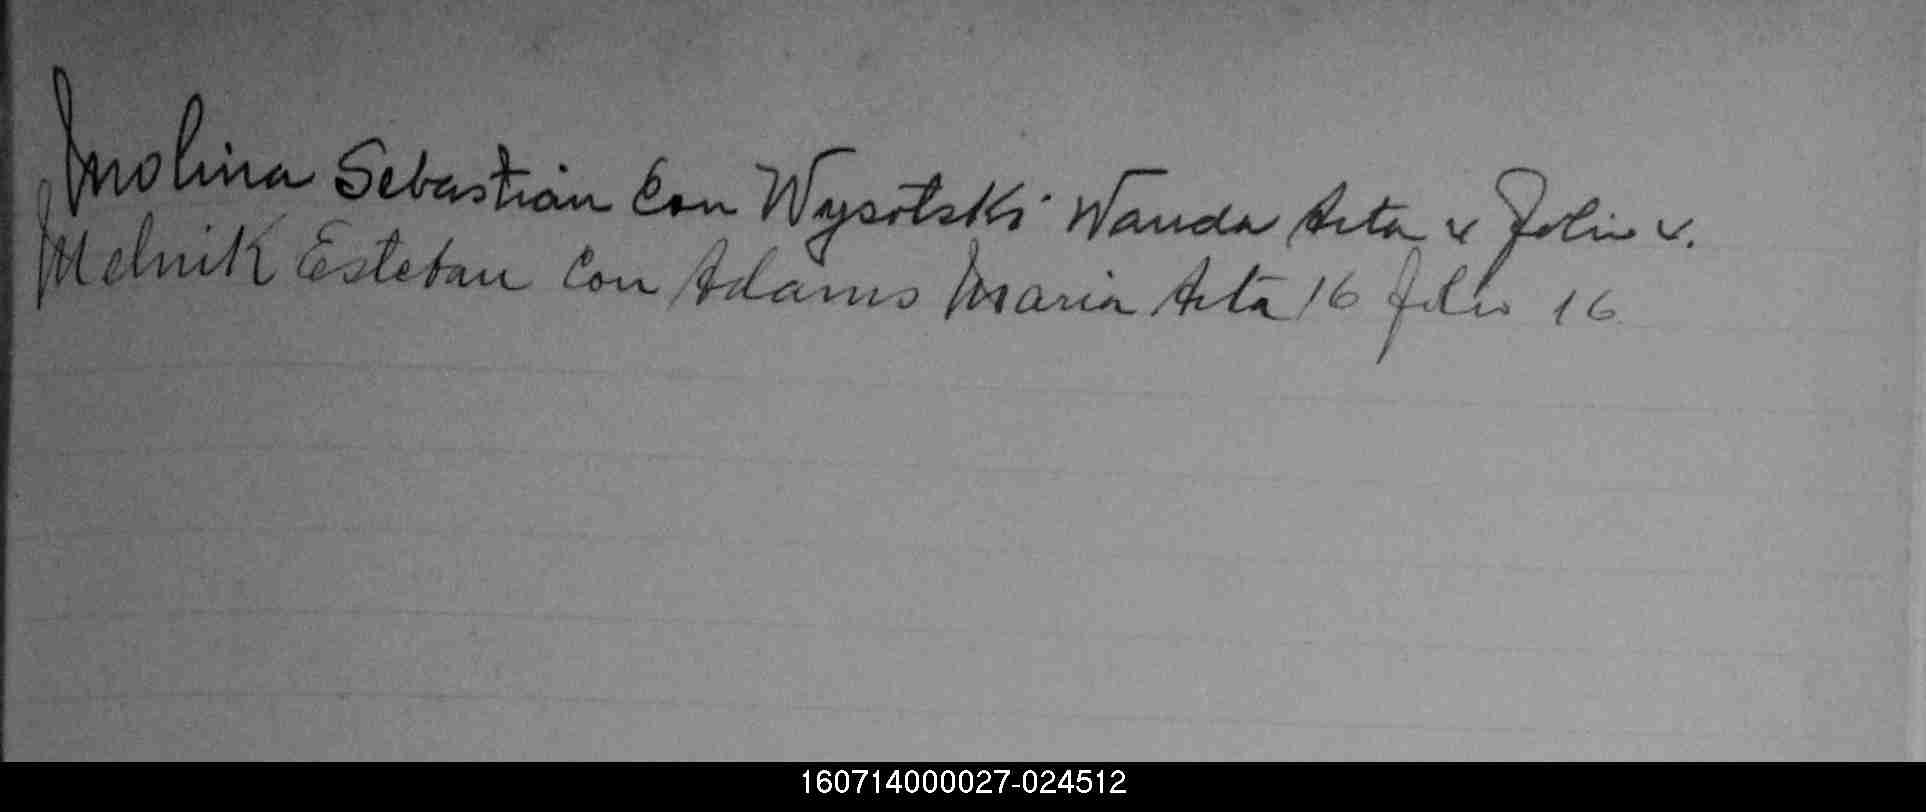 Molina Sebastián Con Wysotski Wanda Acta Folio
Melnik Esteban Con Adams Maria Acta 16 folio 16
160714000027-024512